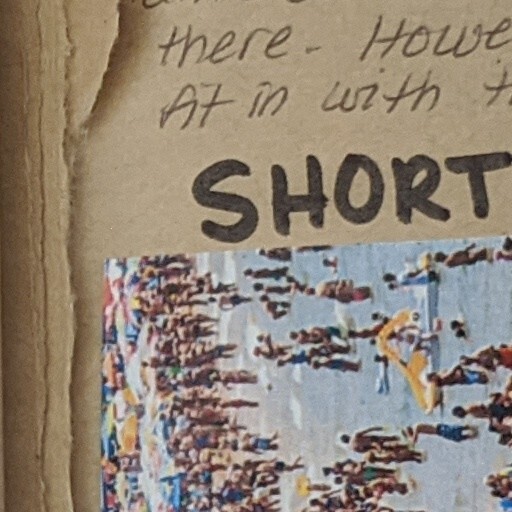 there. Howe
At in with t
SHORT